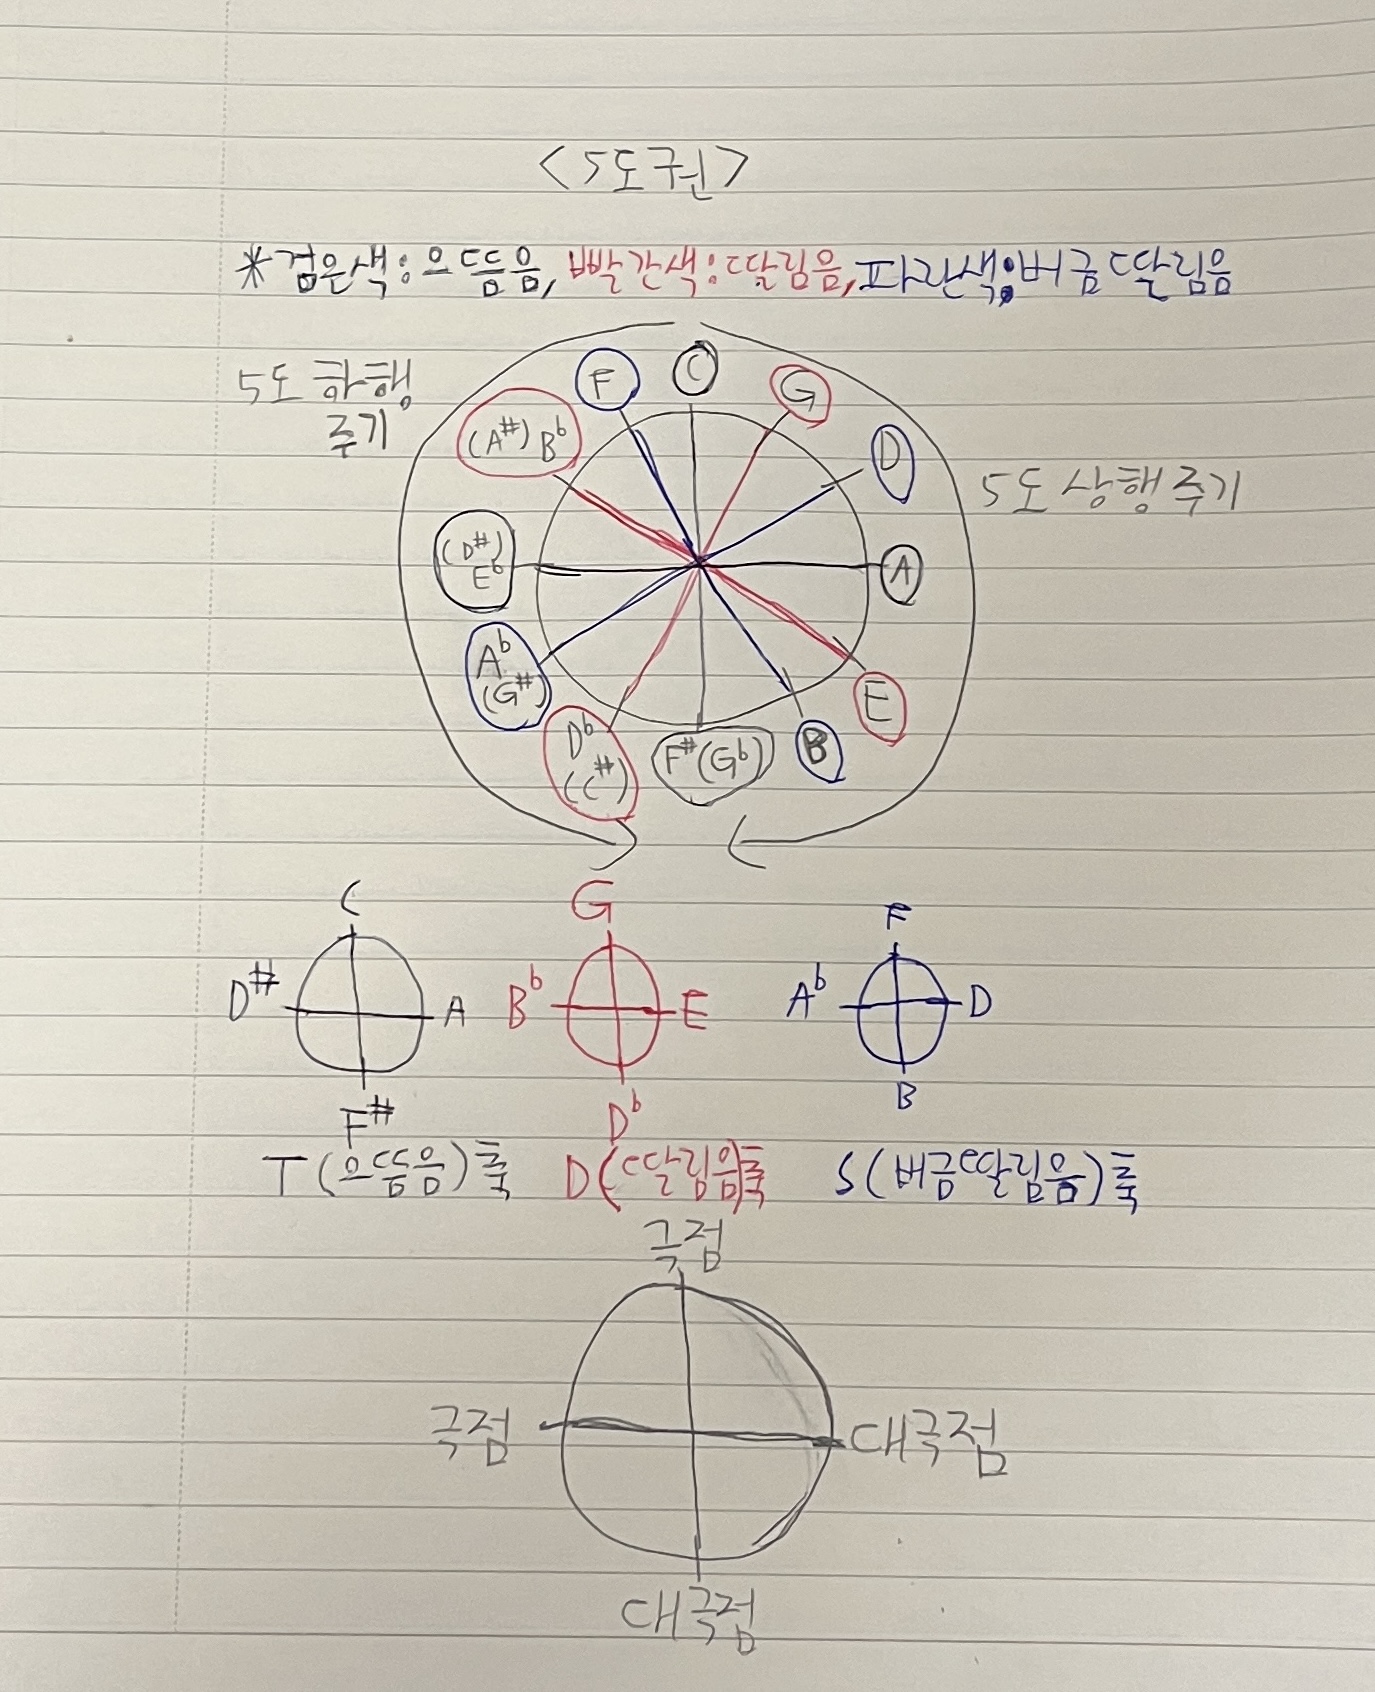 <5도권>
*검은색:으뜸음, 빨간색:딸림음, 파란색:버금딸림음
5도 하행
주기
F
C
G
(A#) B♭
D
5도 상행 주기
(D#)
E♭
A
A♭
(G#)
E
D♭
(C#)
F#(G♭)
B
C
D#
A
F#
G
B♭
E
D♭
F
A♭
D
B
T(으뜸음)축
D(딸림음)축
S(버금딸림음)축
극점
극점
대극점
대극점